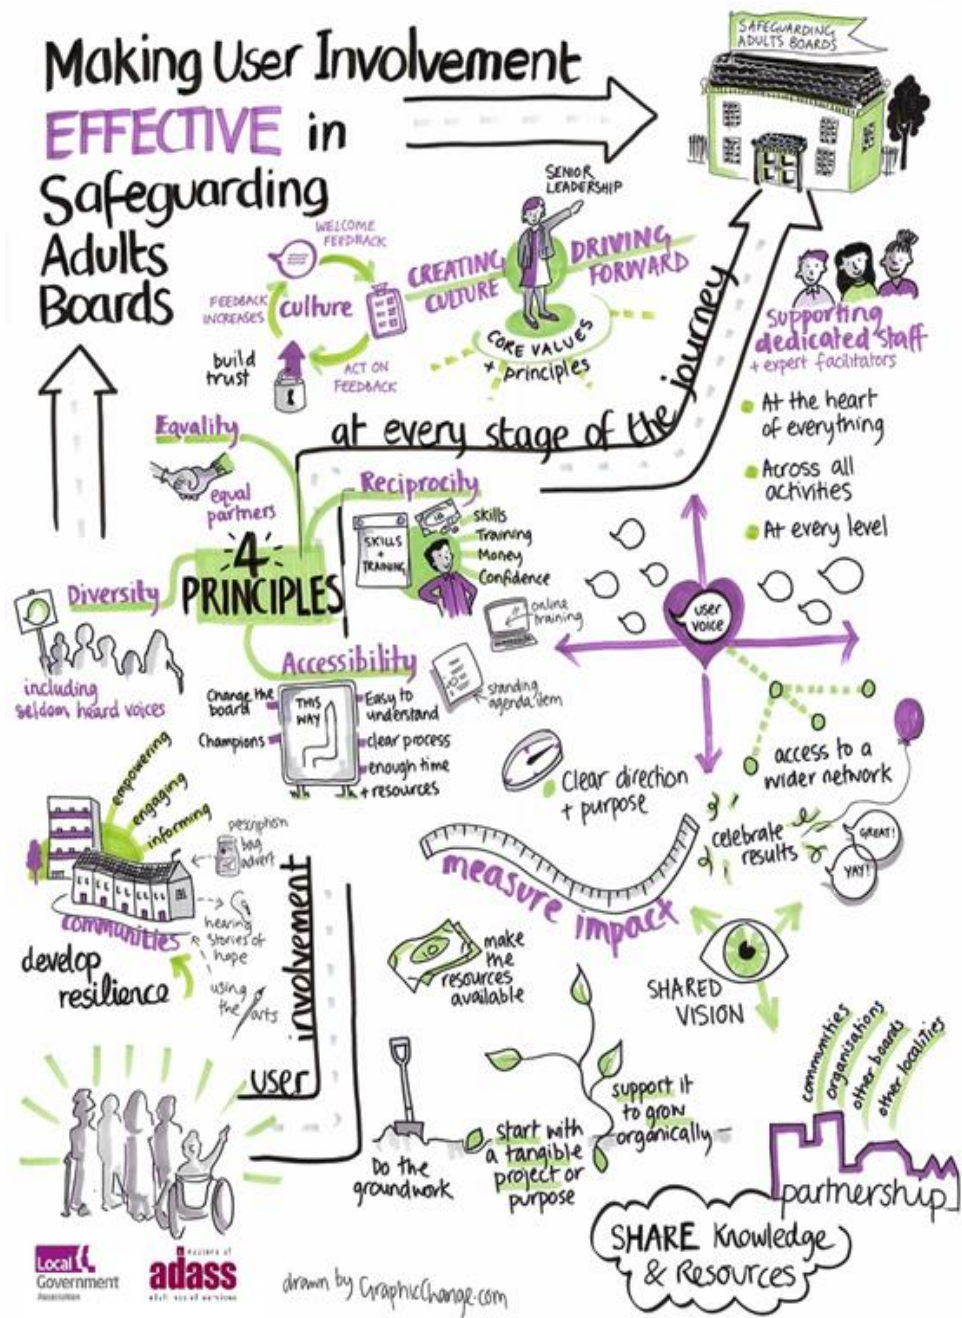 Making User Involvement
EFFECTIVE in
Safeguarding
Adults
Boards
SAFEGUARDING
ADULTS BOARDS
SENIOR
LEADERSHIP
WELCOME
FEEDBACK
culture
FEEDBACK
INCREASES
ACT ON
FEEDBACK
build
trust
CREATING
CULTURE
DRIVING
FORWARD
CORE VALUES
+ principles
at every stage of the journey
supporting
dedicated staff
+ expert facilitators
At the heart
of everything
Across all
activities
At every level
4
PRINCIPLES
Equality
equal
partners
Reciprocity
SKILLS
+
TRAINING
skills
Training
Money
Confidence
online
training
Diversity
including
seldom heard voices
Accessibility
Change the
board
Champions
THIS
WAY
Easy to
understand
clear process
enough time
+ resources
standing
agenda item
user
voice
access to a
wider network
Clear direction
+ purpose
celebrate
results
GREAT!
YAY!
measure impact
empowering
engaging
informing
bag
advert
communities
develop
resilience
hearing
stories of
hope
using
the arts
user involvement
make
the
resources
available
SHARED
VISION
Do the
groundwork
start with
a tangible
project or
purpose
support it
to grow
organically
communities
organisations
other boards
other localities
partnership
SHARE Knowledge
& Resources
Local
Government
Association
adass
drawn by GraphicChange.com